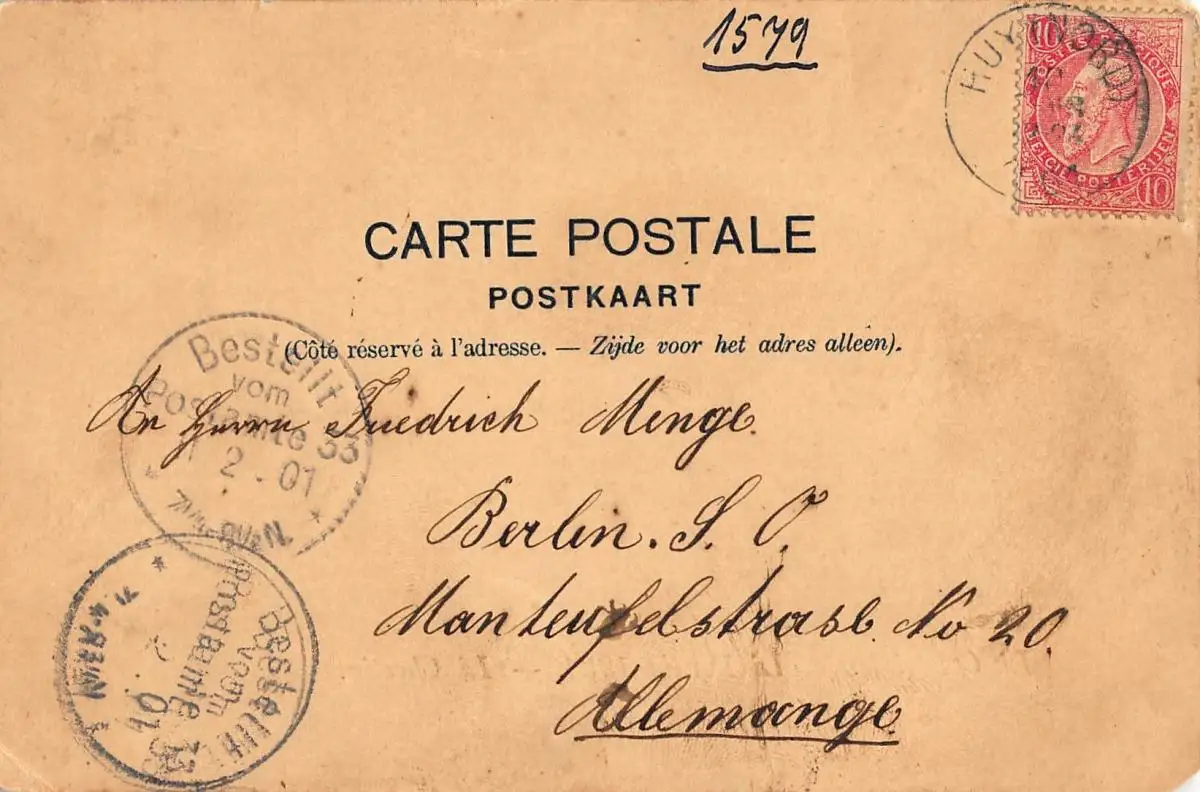 1579
HUY (NORD)
10
POSTE BELGIQUE
BELGIË POSTERIJEN
10
CARTE POSTALE
POSTKAART
(Côté réservé à l'adresse. — Zijde voor het adres alleen).
Bestellt
vom
Postamte 33
2 . 01
An Herrn Friedrich Menge.
Berlin. S. O.
Manteufelstrase No 20.
Allemange
Bestellt
vom
Postamte
01